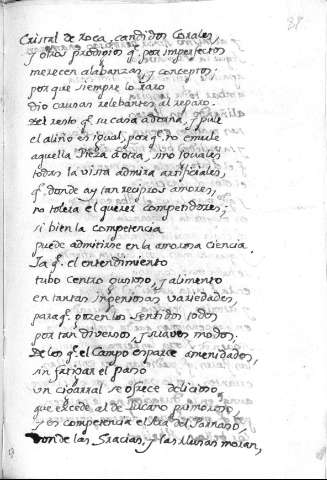 38
Cristal de roca, candidos Corales,
y otros prodigios q.e por imperfectos
merecen alabanzas, y conceptos;
porque siempre lo raro
dio causas relebantes al reparo.
Del resto q.e su casa adorna, y pule
el aliño es igual, porq.e no emule
aquella Pieza à otra, sino iguales
todas la vista admira artificiales,
q.e donde ay tan reciprocos amores,
no tolera el querer competidores;
si bien la competencia
puede admitirse en la amorosa ciencia.
Ja q.e el entendimiento
tubo centro gustoso, y alimento
en tantas ingeniosas variedades,
paraq.e gozen los sentidos todos
por tan diversos, y suaves modos.
De los q.e el Campo esparce amenidades,
sin fatigar el paso
un cigarral se ofrece delicioso,
que excede al de Lucano primoroso,
y es competencia el Sea del Parnaso,
donde las Gracias, y las Musas moran,